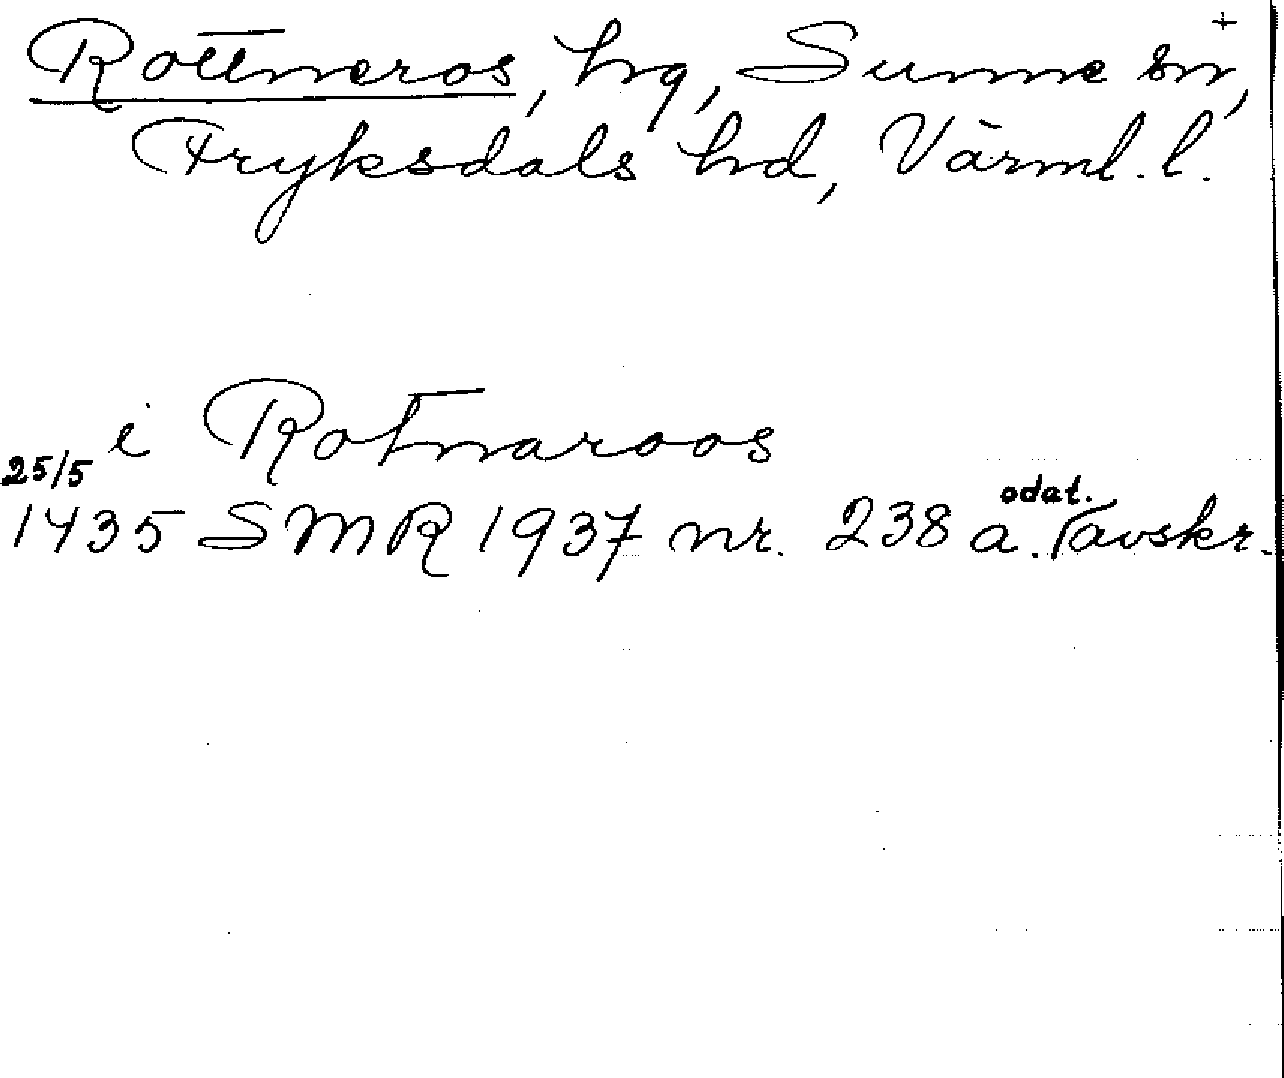 Rottneros, hg, Sunne sn, +
Fryksdals hd, Värml. l.
i Rotnaroos
25/5
1435 SMR 1937 nr. 238 a. odat. avskr.